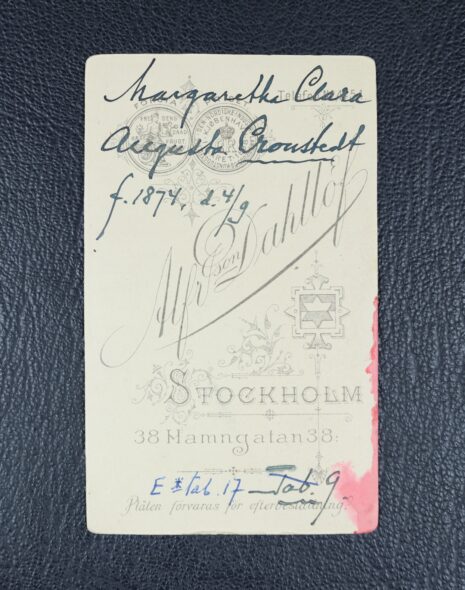 Margaretha Clara
Augusta Cronstedt
f. 1874, d. 4/9
Alfr
son
Dahllöf
STOCKHOLM
38 Hamngatan 38.
Tab. 17 Tab. 9
Plåten förvaras för efterbeställning.